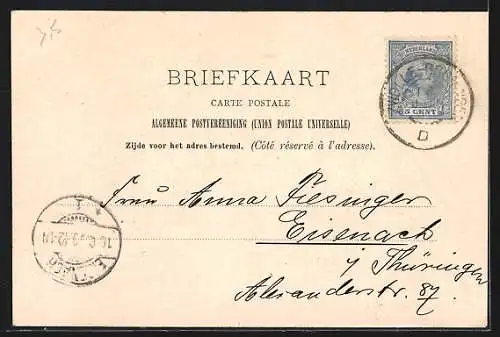 NEDERLAND
5 CENT
D
BRIEFKAART
CARTE POSTALE
ALGEMEENE POSTVEREENIGING (UNION POSTALE UNIVERSELLE)
Zijde voor het adres bestemd. (Côté réservé à l'adresse).
Frau Anna Fiesinger
Eisenach
Thüringen
Alexanderstr. 87.